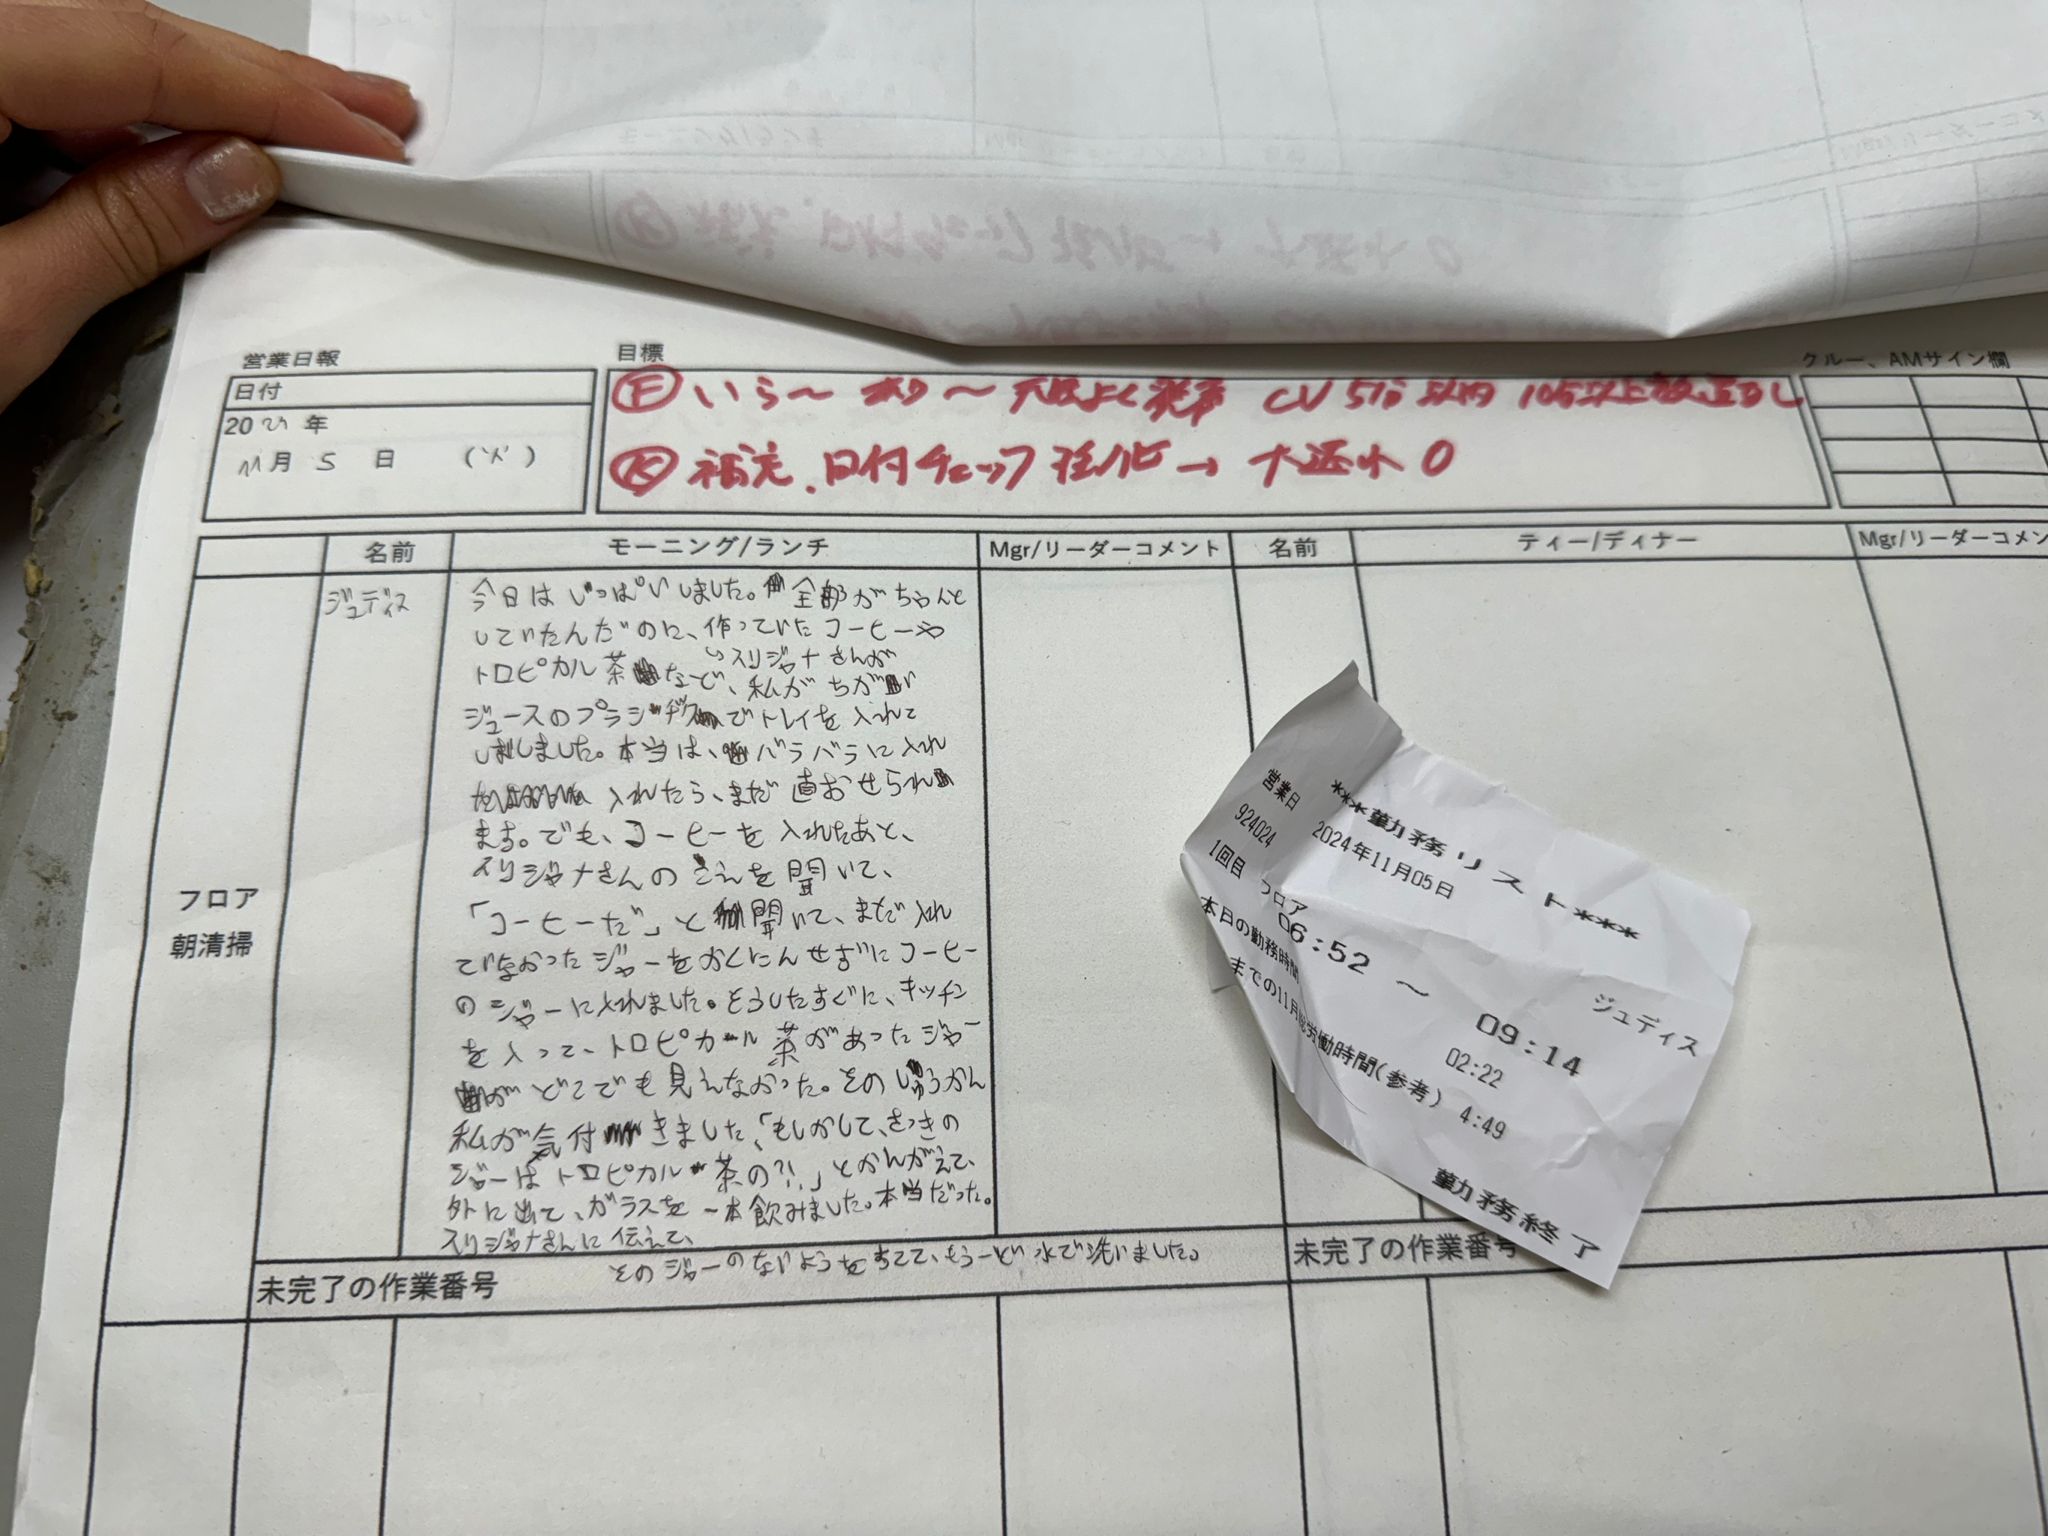 営業日報
日付
20 年
11月 5 日 (火)
目標
Ⓕ いら〜 〜 大 よく CV 5分以内 10分以上
Ⓚ 補充、日付チェック → 0
クルー、AMサイン欄
名前
モーニング/ランチ
Mgr/リーダーコメント
名前
ティー/ディナー
Mgr/リーダーコメン
フロア
朝清掃
ジュディス
今日はしっぱいしました。全部がちゃんと
していたんだのに、作っていたコーヒーや
スリジャナさんが
トロピカル茶など、私がちが
ジュースのプラ でトレイを入れて
しましました。本当は、バラバラに入れ
入れたら、まだ直おせられ
ます。でも、コーヒーを入れたあと、
スリジャナさんのこえを聞いて、
「コーヒーだ」と聞いて、まだ入れ
でなかったジャーをかくにんせずにコーヒー
のジャーに入れました。そうしたすぐに、キッチン
を入って、トロピカール茶があったジャー
がどこでも見えなかった。そのしゅうかん
私が気付きました、「もしかして、さっきの
ジャーはトロピカル茶の?!」とかんがえて、
外に出て、ガラスを一本飲みました。本当だった。
スリジャナさんに伝えて、
そのジャーのないようをすてて、もう一ど水で洗いました。
未完了の作業番号
未完了の作業番号
***勤務リスト***
営業日 2024年11月05日
924024 ジュディス
1回目 フロア
06:52 〜 09:14
本日の勤務時間 02:22
までの11月総労働時間(参考) 4:49
勤務終了